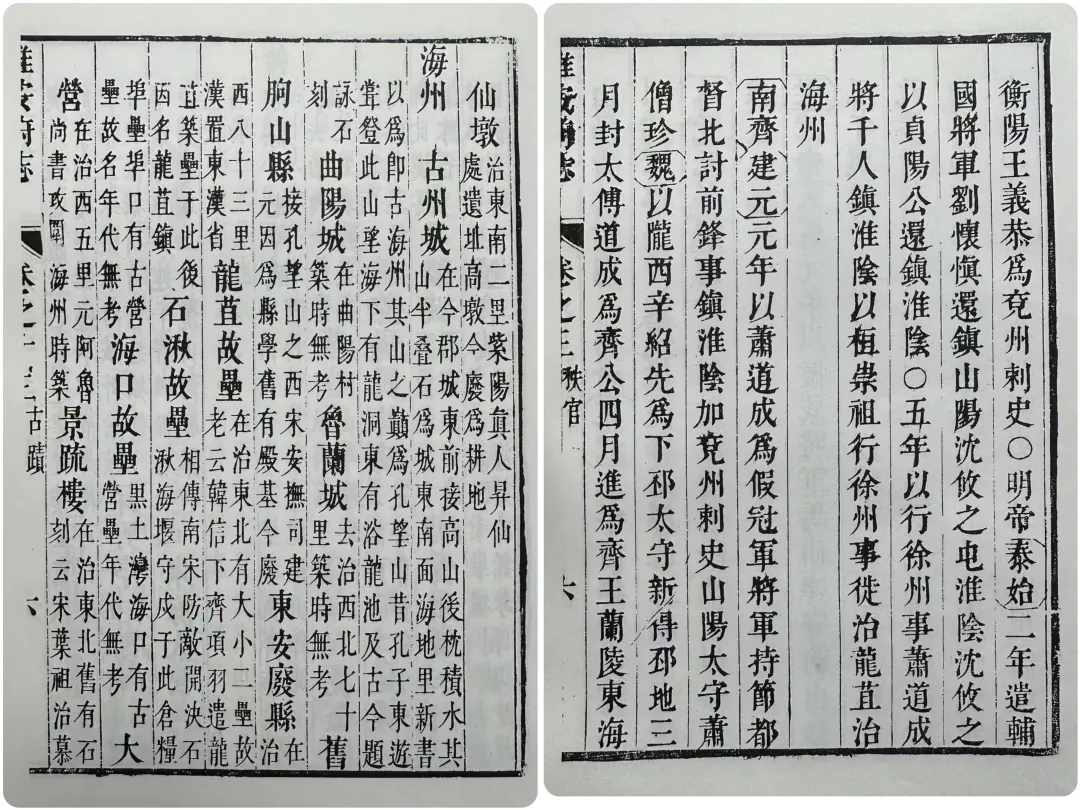 仙墩治東南二里紫陽眞人昇仙
處遺址高墩今廢爲耕地
海州 古州城在今郡城東前接高山後枕積水其
山半叠石爲城東南面海地里新書
以爲卽古海州其山之巔爲孔望山昔孔子東遊
嘗登此山望海下有龍洞東有浴龍池及古今題
詠石
刻 曲陽城在曲陽村
築時無考 魯蘭城去治西北七十
里築時無考 舊
朐山縣接孔望山之西宋安撫司建
元因爲縣學舊有殿基今廢 東安廢縣在
治
西八十三里
漢置東漢省 龍苴故壘在治東北有大小二壘故
老云韓信下齊項羽遣龍
苴築壘于此後
因名龍苴鎮 石湫故壘相傳南宋防敵開決石
湫海堰守戍于此倉糧
埠壘埠口有古營
壘故名年代無考 海口故壘黑土灣海口有古
營壘年代無考 大
營在治西五里元阿魯
尚書攻圍海州時築 景疏樓在治東北舊有石
刻云宋葉祖治慕
淮安府志 卷之二 古蹟 六
衡陽王義恭爲兗州刺史〇明帝泰始二年遣輔
國將軍劉懷愼還鎮山陽沈攸之屯淮陰沈攸之
以貞陽公還鎮淮陰〇五年以行徐州事蕭道成
將千人鎮淮陰以桓崇祖行徐州事徙治龍苴治
海州
南齊建元元年以蕭道成爲假冠軍將軍持節都
督北討前鋒事鎮淮陰加兗州刺史山陽太守蕭
僧珍魏以隴西辛紹先爲下邳太守新得邳地三
月封太傅道成爲齊公四月進爲齊王蘭陵東海
淮安府志 卷之三 秩官 六